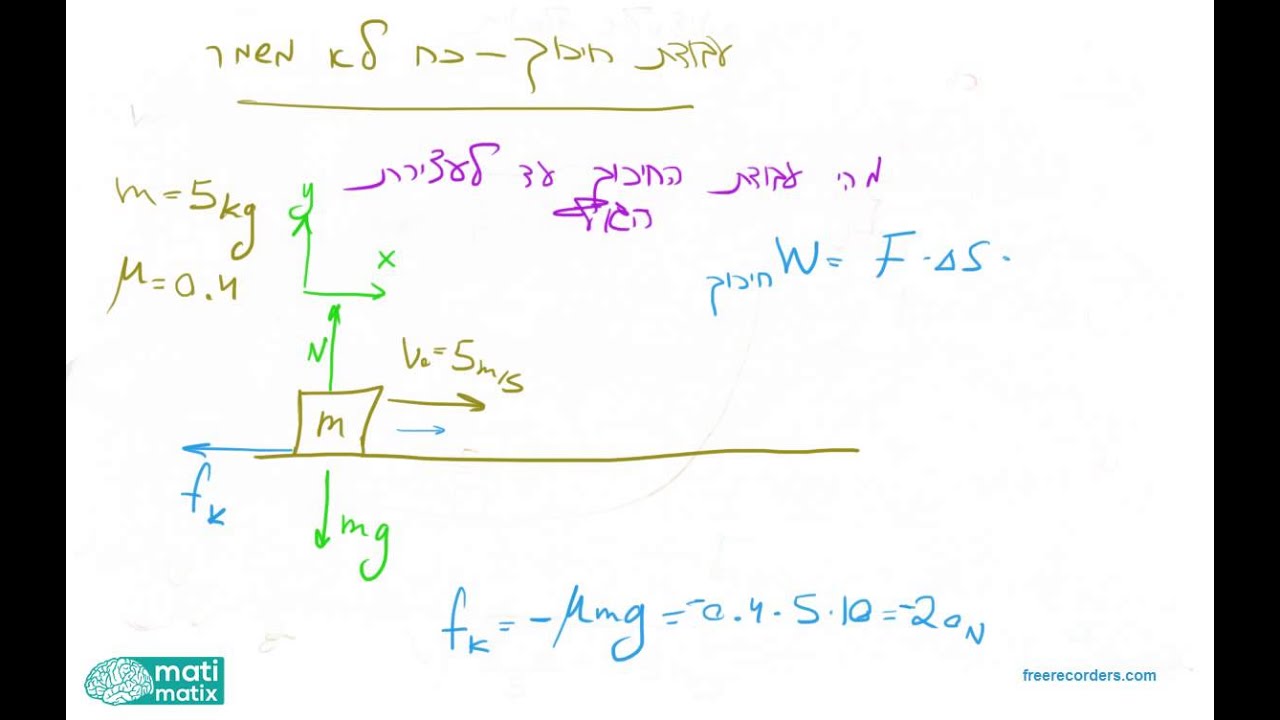 עבודת חיכוך - כח לא משמר
מהי עבודת החיכוך עד לעצירת
הגוף
m = 5kg
μ = 0.4
y
x
W חיכוך = F · Δs ·
N
V₀ = 5 m/s
m
fk
mg
fk = -μmg = -0.4 · 5 · 10 = -20N
mati
matix
freerecorders.com